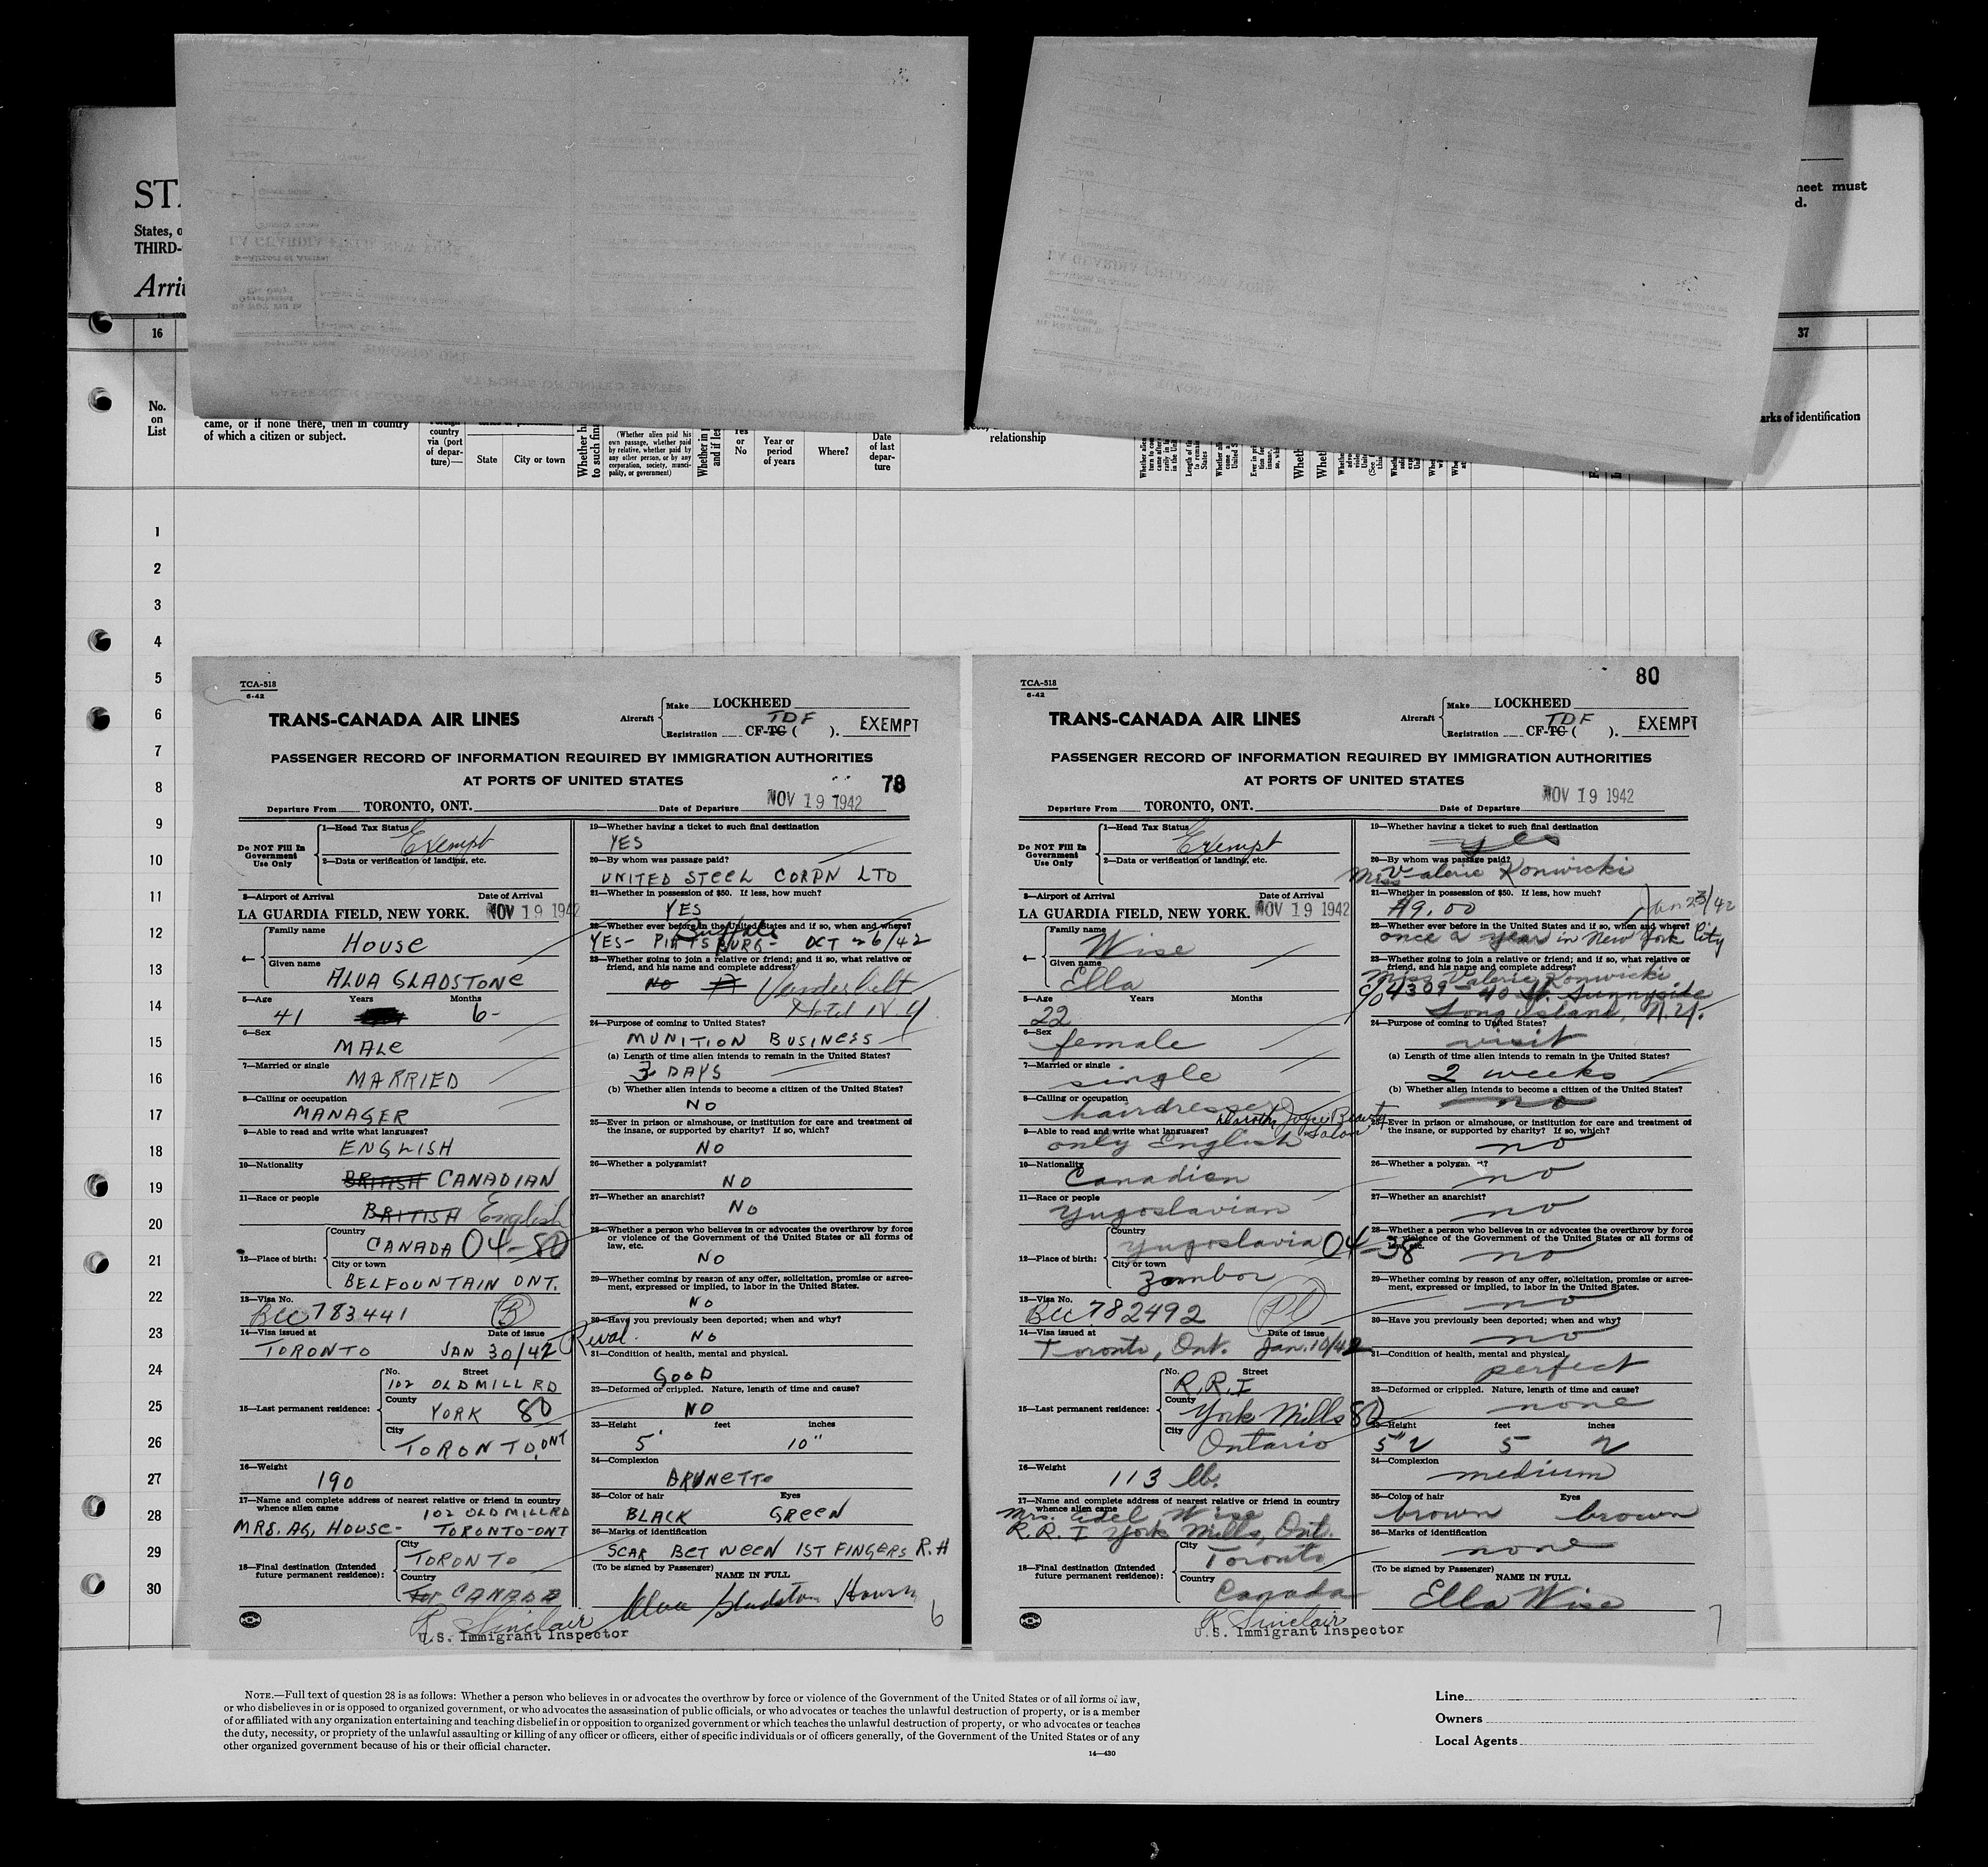 STA
States, o
THIRD-
Arri
neet must
d.
16
37
No.
on
List
came, or if none there, then in country
of which a citizen or subject.
country
via (port
of depar-
ture)—
State
City or town
Whether ha
to such fina
(Whether alien paid his
own passage, whether paid
by relative, whether paid by
any other person, or by any
corporation, society, munici-
pality, or government)
Whether in p
and if les
Yes
or
No
Year or
period
of years
Where?
Date
of last
depar-
ture
relationship
arks of identification
1
2
3
4
5
6
7
8
9
10
11
12
13
14
15
16
17
18
19
20
21
22
23
24
25
26
27
28
29
30
TCA-518
6-42
TRANS-CANADA AIR LINES
Aircraft
Make LOCKHEED
TDF
Registration CF-TC ( ). EXEMPT
PASSENGER RECORD OF INFORMATION REQUIRED BY IMMIGRATION AUTHORITIES
AT PORTS OF UNITED STATES
78
Departure From TORONTO, ONT. Date of Departure NOV 19 1942
Do NOT Fill In
Government
Use Only
1—Head Tax Status
Exempt
2—Data or verification of landing, etc.
3—Airport of Arrival Date of Arrival
LA GUARDIA FIELD, NEW YORK. NOV 19 1942
4—
Family name
HOUSE
Given name
ALVA GLADSTONE
5—Age Years Months
41 6-
6—Sex
MALE
7—Married or single
MARRIED
8—Calling or occupation
MANAGER
9—Able to read and write what languages?
ENGLISH
10—Nationality
BRITISH CANADIAN
11—Race or people
BRITISH English
12—Place of birth:
Country
CANADA 04-80
City or town
BELFOUNTAIN ONT.
13—Visa No.
BCC 783441 B
14—Visa issued at Date of issue
TORONTO JAN 30/42
15—Last permanent residence:
No. Street
102 OLD MILL RD
County
YORK 80
City
TORONTO, ONT
16—Weight
190
17—Name and complete address of nearest relative or friend in country
whence alien came
102 OLD MILL RD
MRS. AG, HOUSE- TORONTO-ONT
18—Final destination (Intended
future permanent residence):
City
TORONTO
Country
CANADA
R Sinclair
U.S. Immigrant Inspector
19—Whether having a ticket to such final destination
YES
20—By whom was passage paid?
UNITED STEEL CORPN LTD
21—Whether in possession of $50. If less, how much?
YES
22—Whether ever before in the United States and if so, when and where?
Buffalo
YES- PITTSBURG- OCT 26/42
23—Whether going to join a relative or friend; and if so, what relative or
friend, and his name and complete address?
NO Vanderbelt
Hotel N.Y
24—Purpose of coming to United States?
MUNITION BUSINESS
(a) Length of time alien intends to remain in the United States?
3 DAYS
(b) Whether alien intends to become a citizen of the United States?
NO
25—Ever in prison or almshouse, or institution for care and treatment of
the insane, or supported by charity? If so, which?
NO
26—Whether a polygamist?
NO
27—Whether an anarchist?
NO
28—Whether a person who believes in or advocates the overthrow by force
or violence of the Government of the United States or all forms of
law, etc.
NO
29—Whether coming by reason of any offer, solicitation, promise or agree-
ment, expressed or implied, to labor in the United States.
NO
30—Have you previously been deported; when and why?
NO
31—Condition of health, mental and physical.
GOOD
32—Deformed or crippled. Nature, length of time and cause?
NO
33—Height feet inches
5' 10"
34—Complexion
BRUNETTE
35—Color of hair Eyes
BLACK GREEN
36—Marks of identification
SCAR BETWEEN 1ST FINGERS R.H
(To be signed by Passenger)
NAME IN FULL
Alva Gladstone House
6
TCA-518
6-42
80
TRANS-CANADA AIR LINES
Aircraft
Make LOCKHEED
TDF
Registration CF-TC ( ). EXEMPT
PASSENGER RECORD OF INFORMATION REQUIRED BY IMMIGRATION AUTHORITIES
AT PORTS OF UNITED STATES
Departure From TORONTO, ONT. Date of Departure NOV 19 1942
Do NOT Fill In
Government
Use Only
1—Head Tax Status
Exempt
2—Data or verification of landing, etc.
3—Airport of Arrival Date of Arrival
LA GUARDIA FIELD, NEW YORK. NOV 19 1942
4—
Family name
Wise
Given name
Ella
5—Age Years Months
22
6—Sex
female
7—Married or single
single
8—Calling or occupation
hairdresser
Dorothy Joyce Beauty
Salon
9—Able to read and write what languages?
only English
10—Nationality
Canadian
11—Race or people
Yugoslavian
12—Place of birth:
Country
Yugoslavia 04-38
City or town
Zombor
13—Visa No.
BCC 782492
14—Visa issued at Date of issue
Toronto, Ont. Jan. 10/42
15—Last permanent residence:
No. Street
R.R.I
County
York Mills 80
City
Ontario
16—Weight
113 lb.
17—Name and complete address of nearest relative or friend in country
whence alien came
Mrs. Adel Wise
R.R.I York Mills, Ont.
18—Final destination (Intended
future permanent residence):
City
Toronto
Country
Canada
R Sinclair
U.S. Immigrant Inspector
19—Whether having a ticket to such final destination
yes
20—By whom was passage paid?
Miss Valerie Konwicki
21—Whether in possession of $50. If less, how much?
49.00 Jan 23/42
22—Whether ever before in the United States and if so, when and where?
once a year in New York City
23—Whether going to join a relative or friend; and if so, what relative or
friend, and his name and complete address?
Miss Valerie Konwicki
c/o 4309-40 St. Sunnyside
Long Island, N.Y.
24—Purpose of coming to United States?
visit
(a) Length of time alien intends to remain in the United States?
2 weeks
(b) Whether alien intends to become a citizen of the United States?
no
25—Ever in prison or almshouse, or institution for care and treatment of
the insane, or supported by charity? If so, which?
no
26—Whether a polygamist?
no
27—Whether an anarchist?
no
28—Whether a person who believes in or advocates the overthrow by force
or violence of the Government of the United States or all forms of
law, etc.
no
29—Whether coming by reason of any offer, solicitation, promise or agree-
ment, expressed or implied, to labor in the United States.
no
30—Have you previously been deported; when and why?
no
31—Condition of health, mental and physical.
perfect
32—Deformed or crippled. Nature, length of time and cause?
none
33—Height feet inches
5"2 5 2
34—Complexion
medium
35—Color of hair Eyes
brown brown
36—Marks of identification
none
(To be signed by Passenger)
NAME IN FULL
Ella Wise
7
NOTE.—Full text of question 28 is as follows: Whether a person who believes in or advocates the overthrow by force or violence of the Government of the United States or of all forms of law,
or who disbelieves in or is opposed to organized government, or who advocates the assassination of public officials, or who advocates or teaches the unlawful destruction of property, or is a member
of or affiliated with any organization entertaining and teaching disbelief in or opposition to organized government or which teaches the unlawful destruction of property, or who advocates or teaches
the duty, necessity, or propriety of the unlawful assaulting or killing of any officer or officers, either of specific individuals or of officers generally, of the Government of the United States or of any
other organized government because of his or their official character.
14—430
Line
Owners
Local Agents